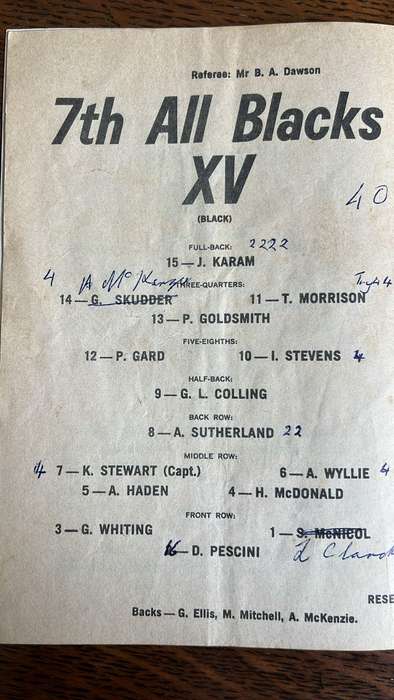 Referee: Mr B. A. Dawson
7th All Blacks
XV
40
(BLACK)
FULL-BACK: 2222
15—J. KARAM
4 A McKenzie THREE-QUARTERS: Try 4
14—G. SKUDDER 11—T. MORRISON
13—P. GOLDSMITH
FIVE-EIGHTHS:
12—P. GARD 10—I. STEVENS 4
HALF-BACK:
9—G. L. COLLING
BACK ROW:
8—A. SUTHERLAND 22
MIDDLE ROW:
4 7—K. STEWART (Capt.) 6—A. WYLLIE 4
5—A. HADEN 4—H. McDONALD
FRONT ROW:
3—G. WHITING 1—S. McNICOL
16—D. PESCINI
RESE
Backs—G. Ellis, M. Mitchell, A. McKenzie.